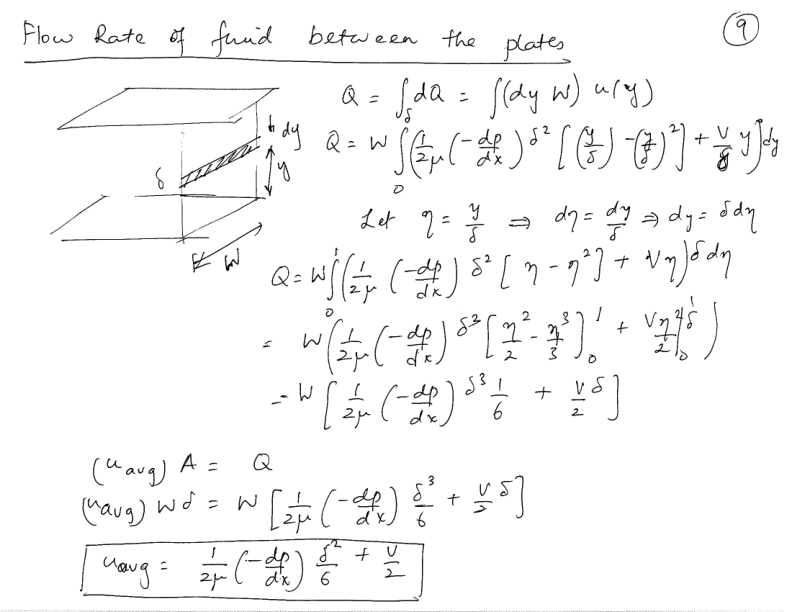 Flow Rate of fluid between the plates
9
Q = ∫_δ dQ = ∫(dy W) u(y)
dy
y
δ
W
Q = W ∫_0^δ [(1/2μ (-dp/dx) δ² [(y/δ) - (y/δ)²] + V/δ y] dy
Let η = y/δ ⇒ dη = dy/δ ⇒ dy = δ dη
Q = W ∫_0^1 (1/2μ (-dp/dx) δ² [η - η²] + Vη) δ dη
= W (1/2μ (-dp/dx) δ³ [η²/2 - η³/3]_0^1 + Vη²/2 |_0^1 δ)
= W [1/2μ (-dp/dx) δ³ 1/6 + V/2 δ]
(u avg) A = Q
(u avg) W δ = W [1/2μ (-dp/dx) δ³/6 + V/2 δ]
u avg = 1/2μ (-dp/dx) δ²/6 + V/2